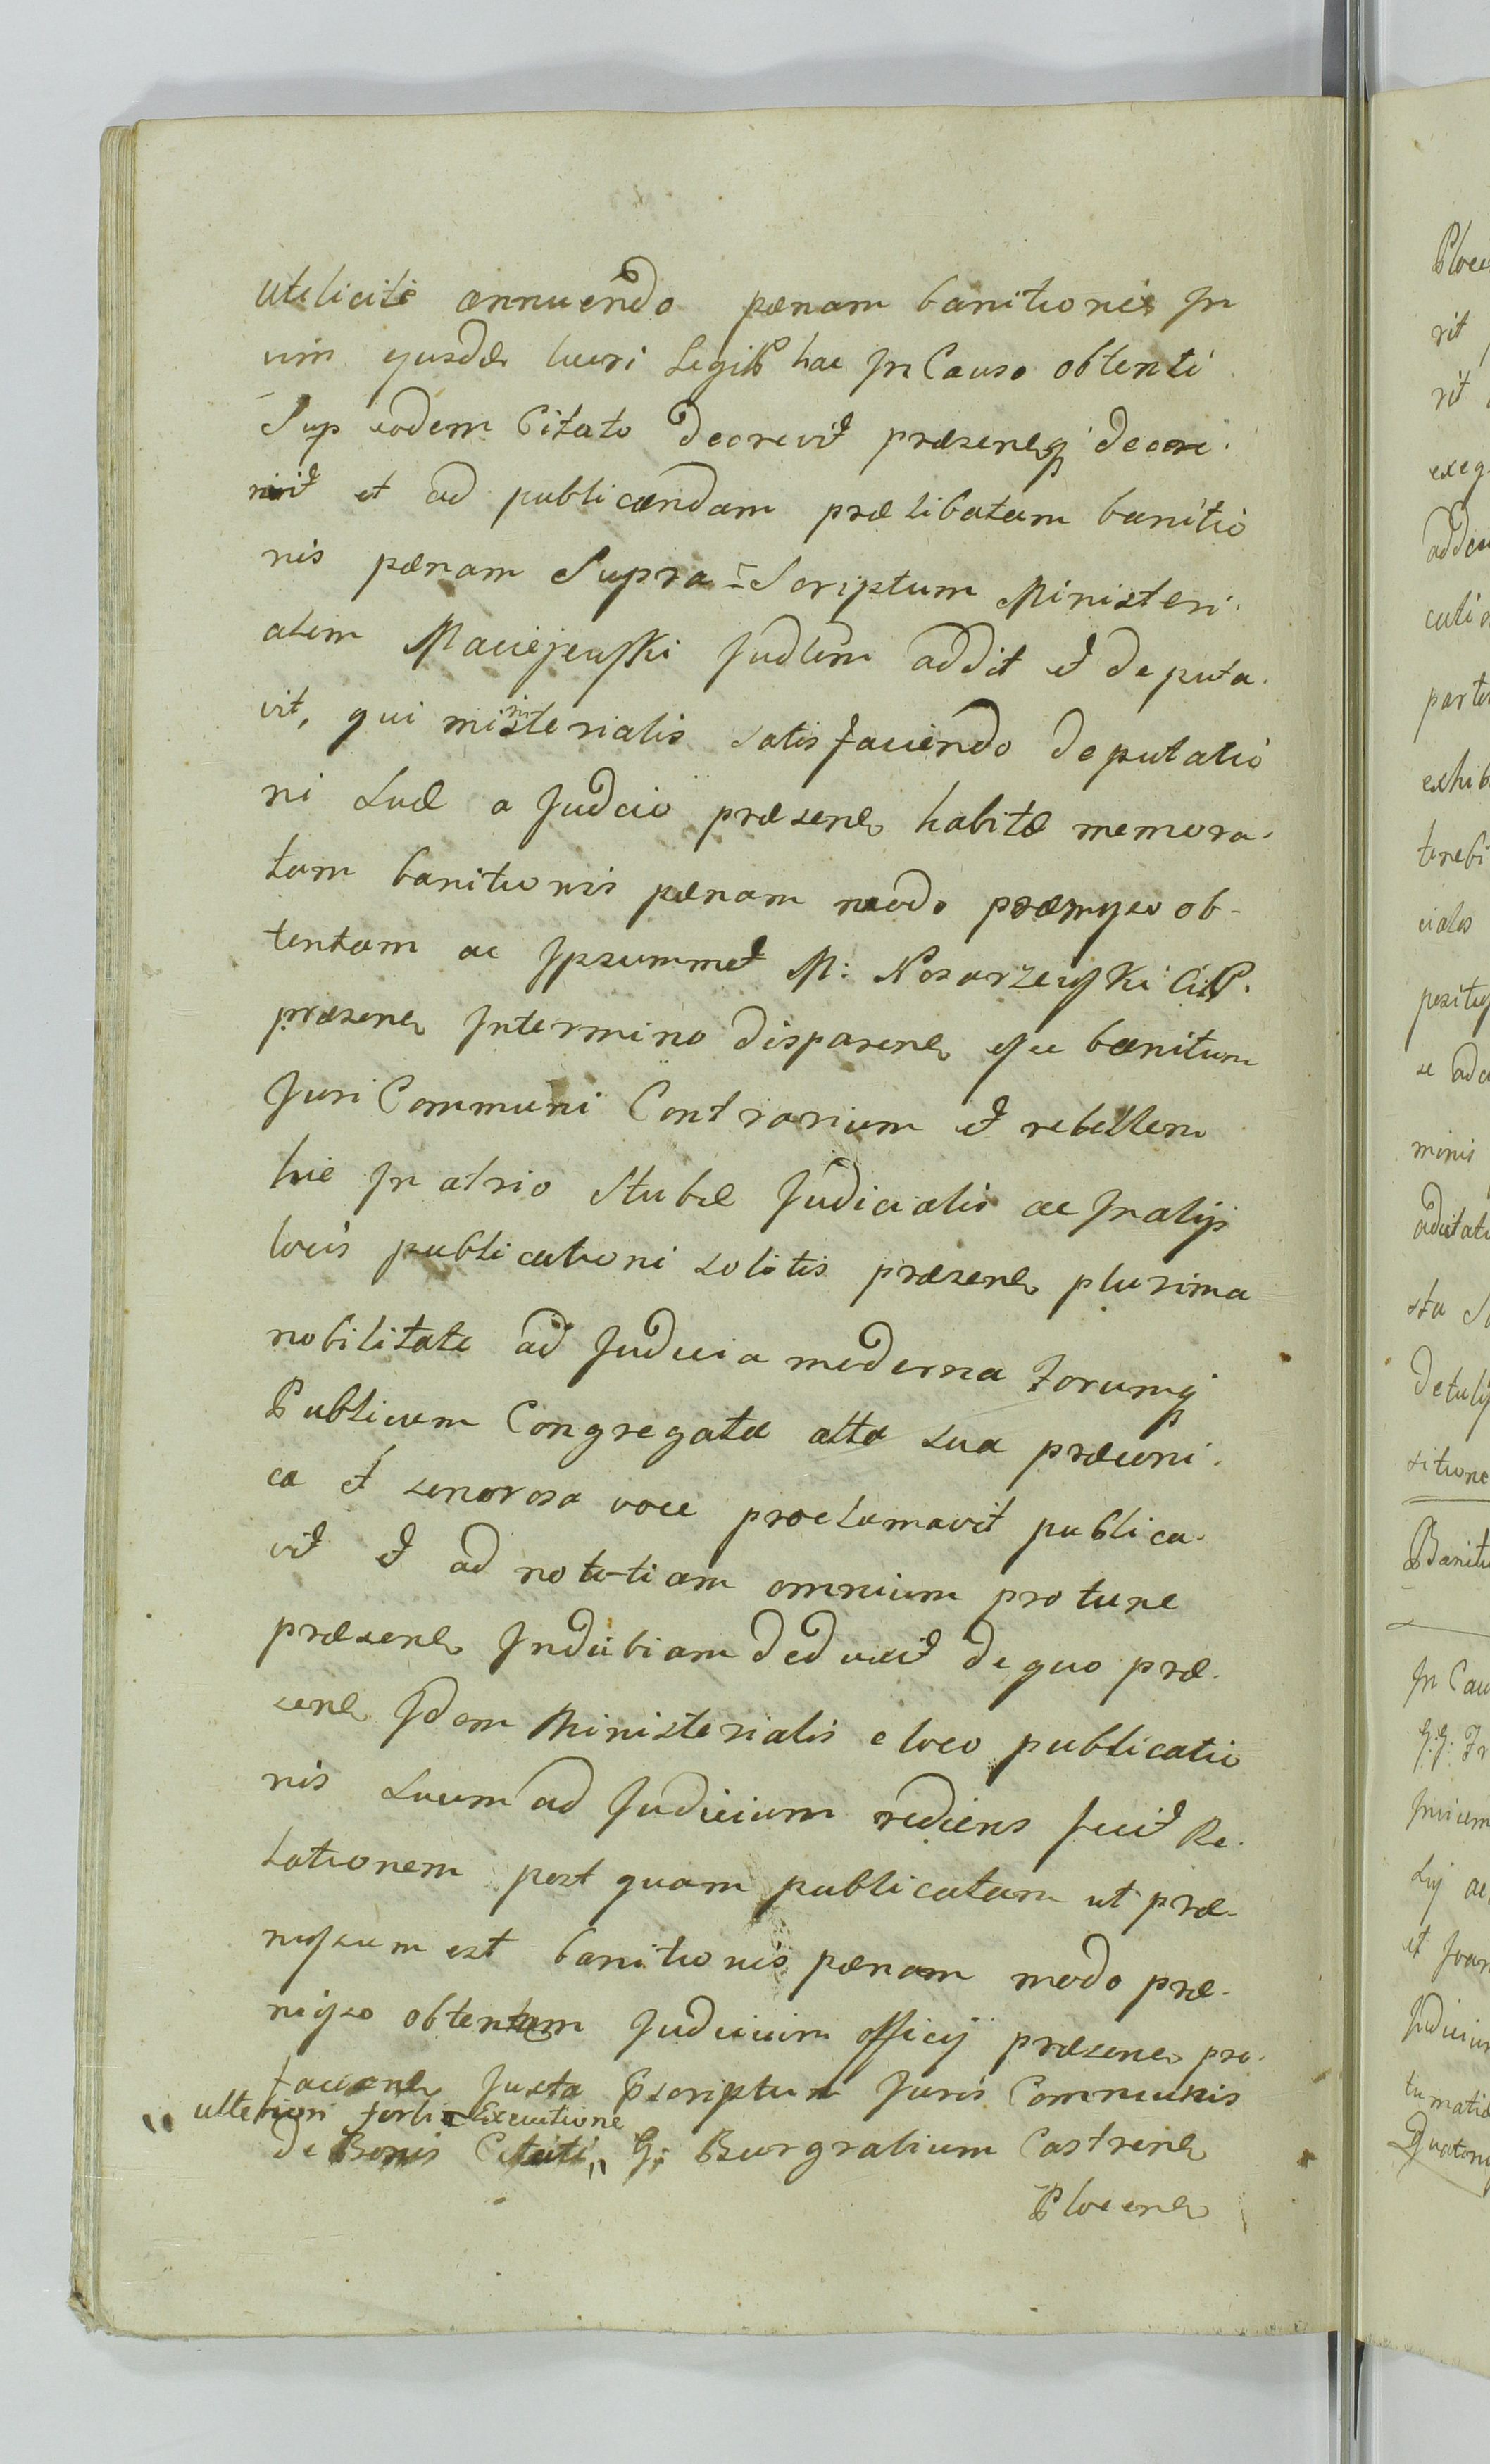 uteliciti annuendo pænam banitionis In
vim ejusdæ lucri Legib hac In Causa obtenti
Sup eodem Citato decrevit præsenq decre.
nit et ad publicandam prælibatam banitio
nis pænam Supra-Scriptum Ministeri.
alem Maciejewski Judlem addit et deputa.
vit, qui ministerialis satisfaciendo deputatio
ni suæ a Judcio præsen habitæ memora.
tam banitionis pænam modo præmysso ob-
tentam ac Ipsummet M: Kosarzewski Cit.
præsen Intermino disparen esse banitum
Juri Communi Contrarium et rebellem
hic In atrio Stubæ Judicialis ac Inalijs
locis publicationi solitis præsen plurima
nobilitate ad Judicia moderna Forumq
Publicum Congregata alta sua præconi.
ca et sonorosa voce proclamavit publica.
vit et ad notitiam omnium protunc
præsen Indubiam deduxit dequo præ.
sen Idem Ministerialis eloco publicatio
nis suum ad Judicium rediens fecit Re.
lationem post quam publicatam ut præ-
missum est banitionis pænam modo præ-
mijso obtentam Judicium officij præsen pro.
facien Juxta Pscriptum Juris Communis
„ ulteriori forti Executione
de Bonis Citati „ G: Burgrabium Castren
Plocen

Ploce
rit
rit
exeq
addu
cutio
parte
exhib
tenebi
ciales
posity
se ada
minis
aditat
sta
Detuly
sitione
Banitu
In Cau
G.G: Fr
Invicem
et Joan
Judicium
tumatia